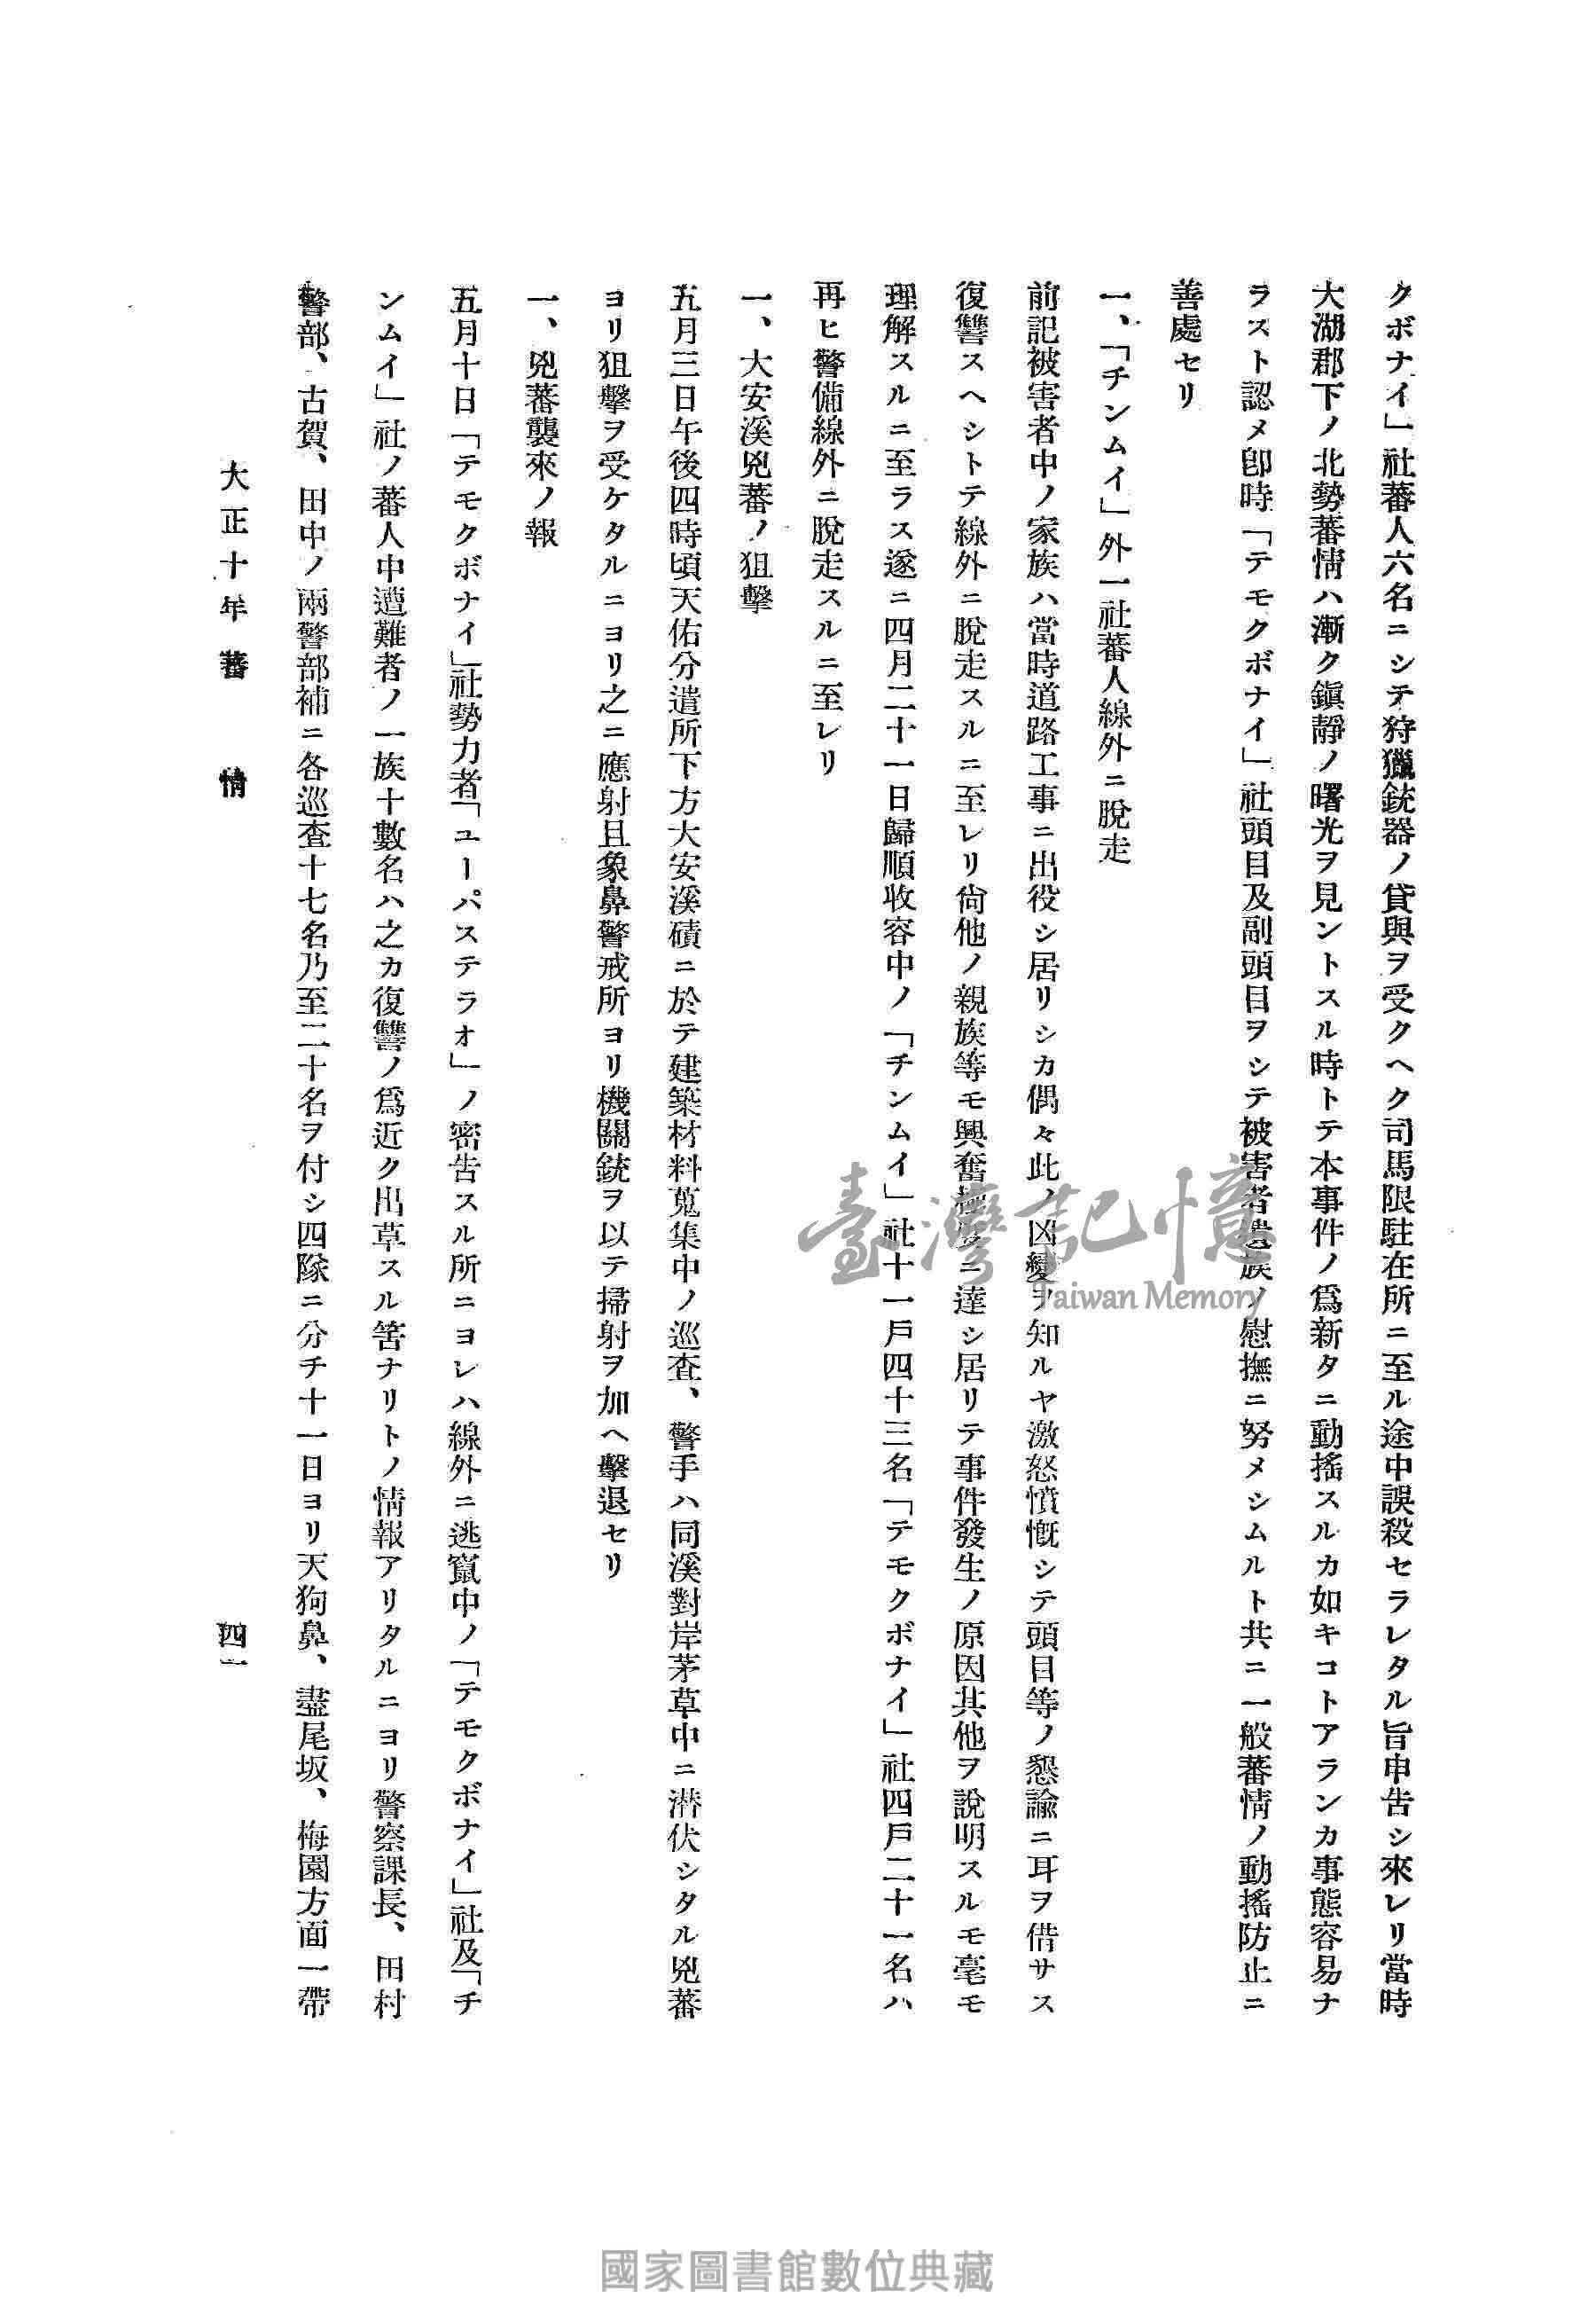 クボナイ」社蕃人六名ニシテ狩獵銃器ノ貸與ヲ受クヘク司馬限駐在所ニ至ル途中誤殺セラレタル旨申告シ來レリ當時
大湖郡下ノ北勢蕃情ハ漸ク鎭靜ノ曙光ヲ見ントスル時トテ本事件ノ爲新タニ動搖スルカ如キコトアランカ事態容易ナ
ラスト認メ卽時「テモクボナイ」社頭目及副頭目ヲシテ被害者遺族ノ慰撫ニ努メシムルト共ニ一般蕃情ノ動搖防止ニ
善處セリ
一、「チンムイ」外一社蕃人線外ニ脫走
前記被害者中ノ家族ハ當時道路工事ニ出役シ居リシカ偶々此ノ凶變ヲ知ルヤ激怒憤慨シテ頭目等ノ懇諭ニ耳ヲ借サス
復讐スヘシトテ線外ニ脫走スルニ至レリ尙他ノ親族等モ興奮極度ニ達シ居リテ事件發生ノ原因其他ヲ說明スルモ毫モ
理解スルニ至ラス遂ニ四月二十一日歸順收容中ノ「チンムイ」社十一戶四十三名「テモクボナイ」社四戶二十一名ハ
再ヒ警備線外ニ脫走スルニ至レリ
一、大安溪兇蕃ノ狙擊
五月三日午後四時頃天佑分遣所下方大安溪磧ニ於テ建築材料蒐集中ノ巡査、警手ハ同溪對岸茅草中ニ潜伏シタル兇蕃
ヨリ狙擊ヲ受ケタルニヨリ之ニ應射且象鼻警戒所ヨリ機關銃ヲ以テ掃射ヲ加ヘ擊退セリ
一、兇蕃襲來ノ報
五月十日「テモクボナイ」社勢力者「ユーパステラオ」ノ密告スル所ニヨレハ線外ニ逃竄中ノ「テモクボナイ」社及「チ
ンムイ」社ノ蕃人中遭難者ノ一族十數名ハ之カ復讐ノ爲近ク出草スル筈ナリトノ情報アリタルニヨリ警察課長、田村
警部、古賀、田中ノ兩警部補ニ各巡査十七名乃至二十名ヲ付シ四隊ニ分チ十一日ヨリ天狗鼻、盡尾坂、梅園方面一帶
大正十年 蕃情 四一
臺灣記憶
Taiwan Memory
國家圖書館數位典藏